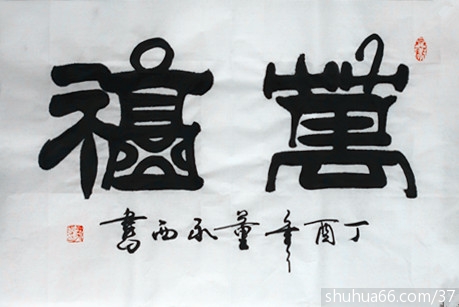 萬福
丁酉年董永西書
shuhua66.com/37